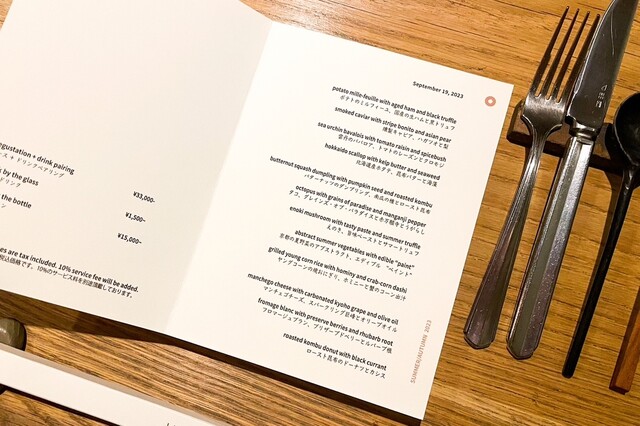 egustation + drink pairing
ース + ドリンクペアリング
¥33,000-
s by the glass
ドリンク
¥1,500~
the bottle
ン
¥15,000~
es are tax included. 10% service fee will be added.
税込価格です。10%のサービス料を別途頂戴しております。
September 19, 2023
potato mille-feuille with aged ham and black truffle
ポテトのミルフィーユ、国産の生ハムと黒トリュフ
smoked caviar with stripe bonito and asian pear
燻製キャビア、ハガツオと梨
sea urchin bavalois with tomato raisin and spicebush
雲丹のババロア、トマトのレーズンとクロモジ
hokkaido scallop with kelp butter and seaweed
北海道産ホタテ、昆布バターと海藻
butternut squash dumpling with pumpkin seed and roasted kombu
バターナッツのダンプリング、南瓜の種とロースト昆布
octopus with grains of paradise and manganji pepper
タコ、グレインズ・オブ・パラダイスと万願寺とうがらし
enoki mushroom with tasty paste and summer truffle
えのき、旨味ペーストとサマートリュフ
abstract summer vegetables with edible "paint"
京都の夏野菜のアブストラクト、エディブル "ペイント"
grilled young corn rice with hominy and crab-corn dashi
ヤングコーンの焼おにぎり、ホミニーと蟹のコーン出汁
manchego cheese with carbonated kyoho grape and olive oil
マンチェゴチーズ、スパークリング巨峰とオリーブオイル
fromage blanc with preserve berries and rhubarb root
フロマージュブラン、プリザーブドベリーとルバーブ根
roasted kombu donut with black currant
ロースト昆布のドーナツとカシス
SUMMER/AUTUMN 2023